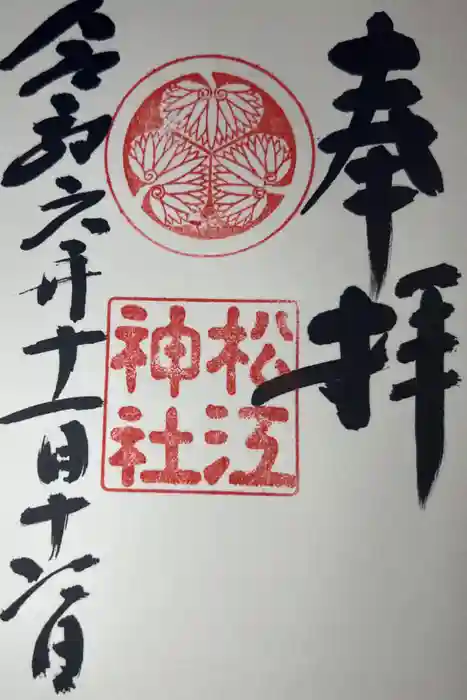 奉拝
松江
神社
令和六年十一月十八日